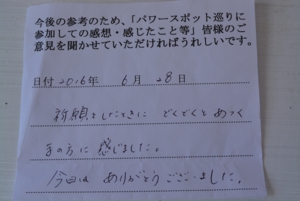 今後の参考のため、「パワースポット巡りに
参加しての感想・感じたこと等」皆様のご
意見を聞かせていただければうれしいです。
日付2016年 6月 28日
祈願をしたときに どくどくと あつく
手の方に 感じました。
今回は ありがとうございました。